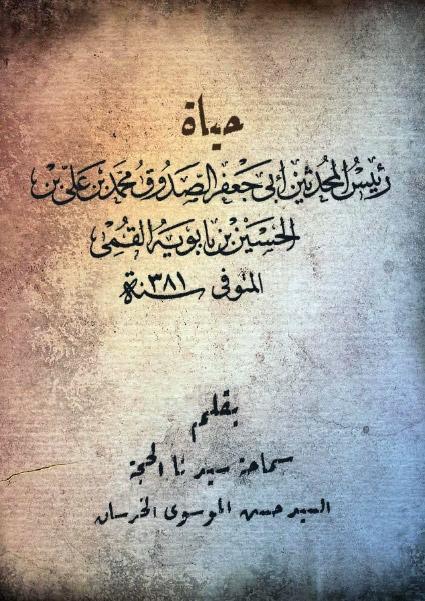 حياة
رئيس المحدثين أبي جعفر الصدوق محمد بن علي بن
الحسين بن بابويه القمي
المتوفى سنة ٣٨١
بقلم
سماحة سيدنا الحجة
السيد حسن الموسوي الخرسان